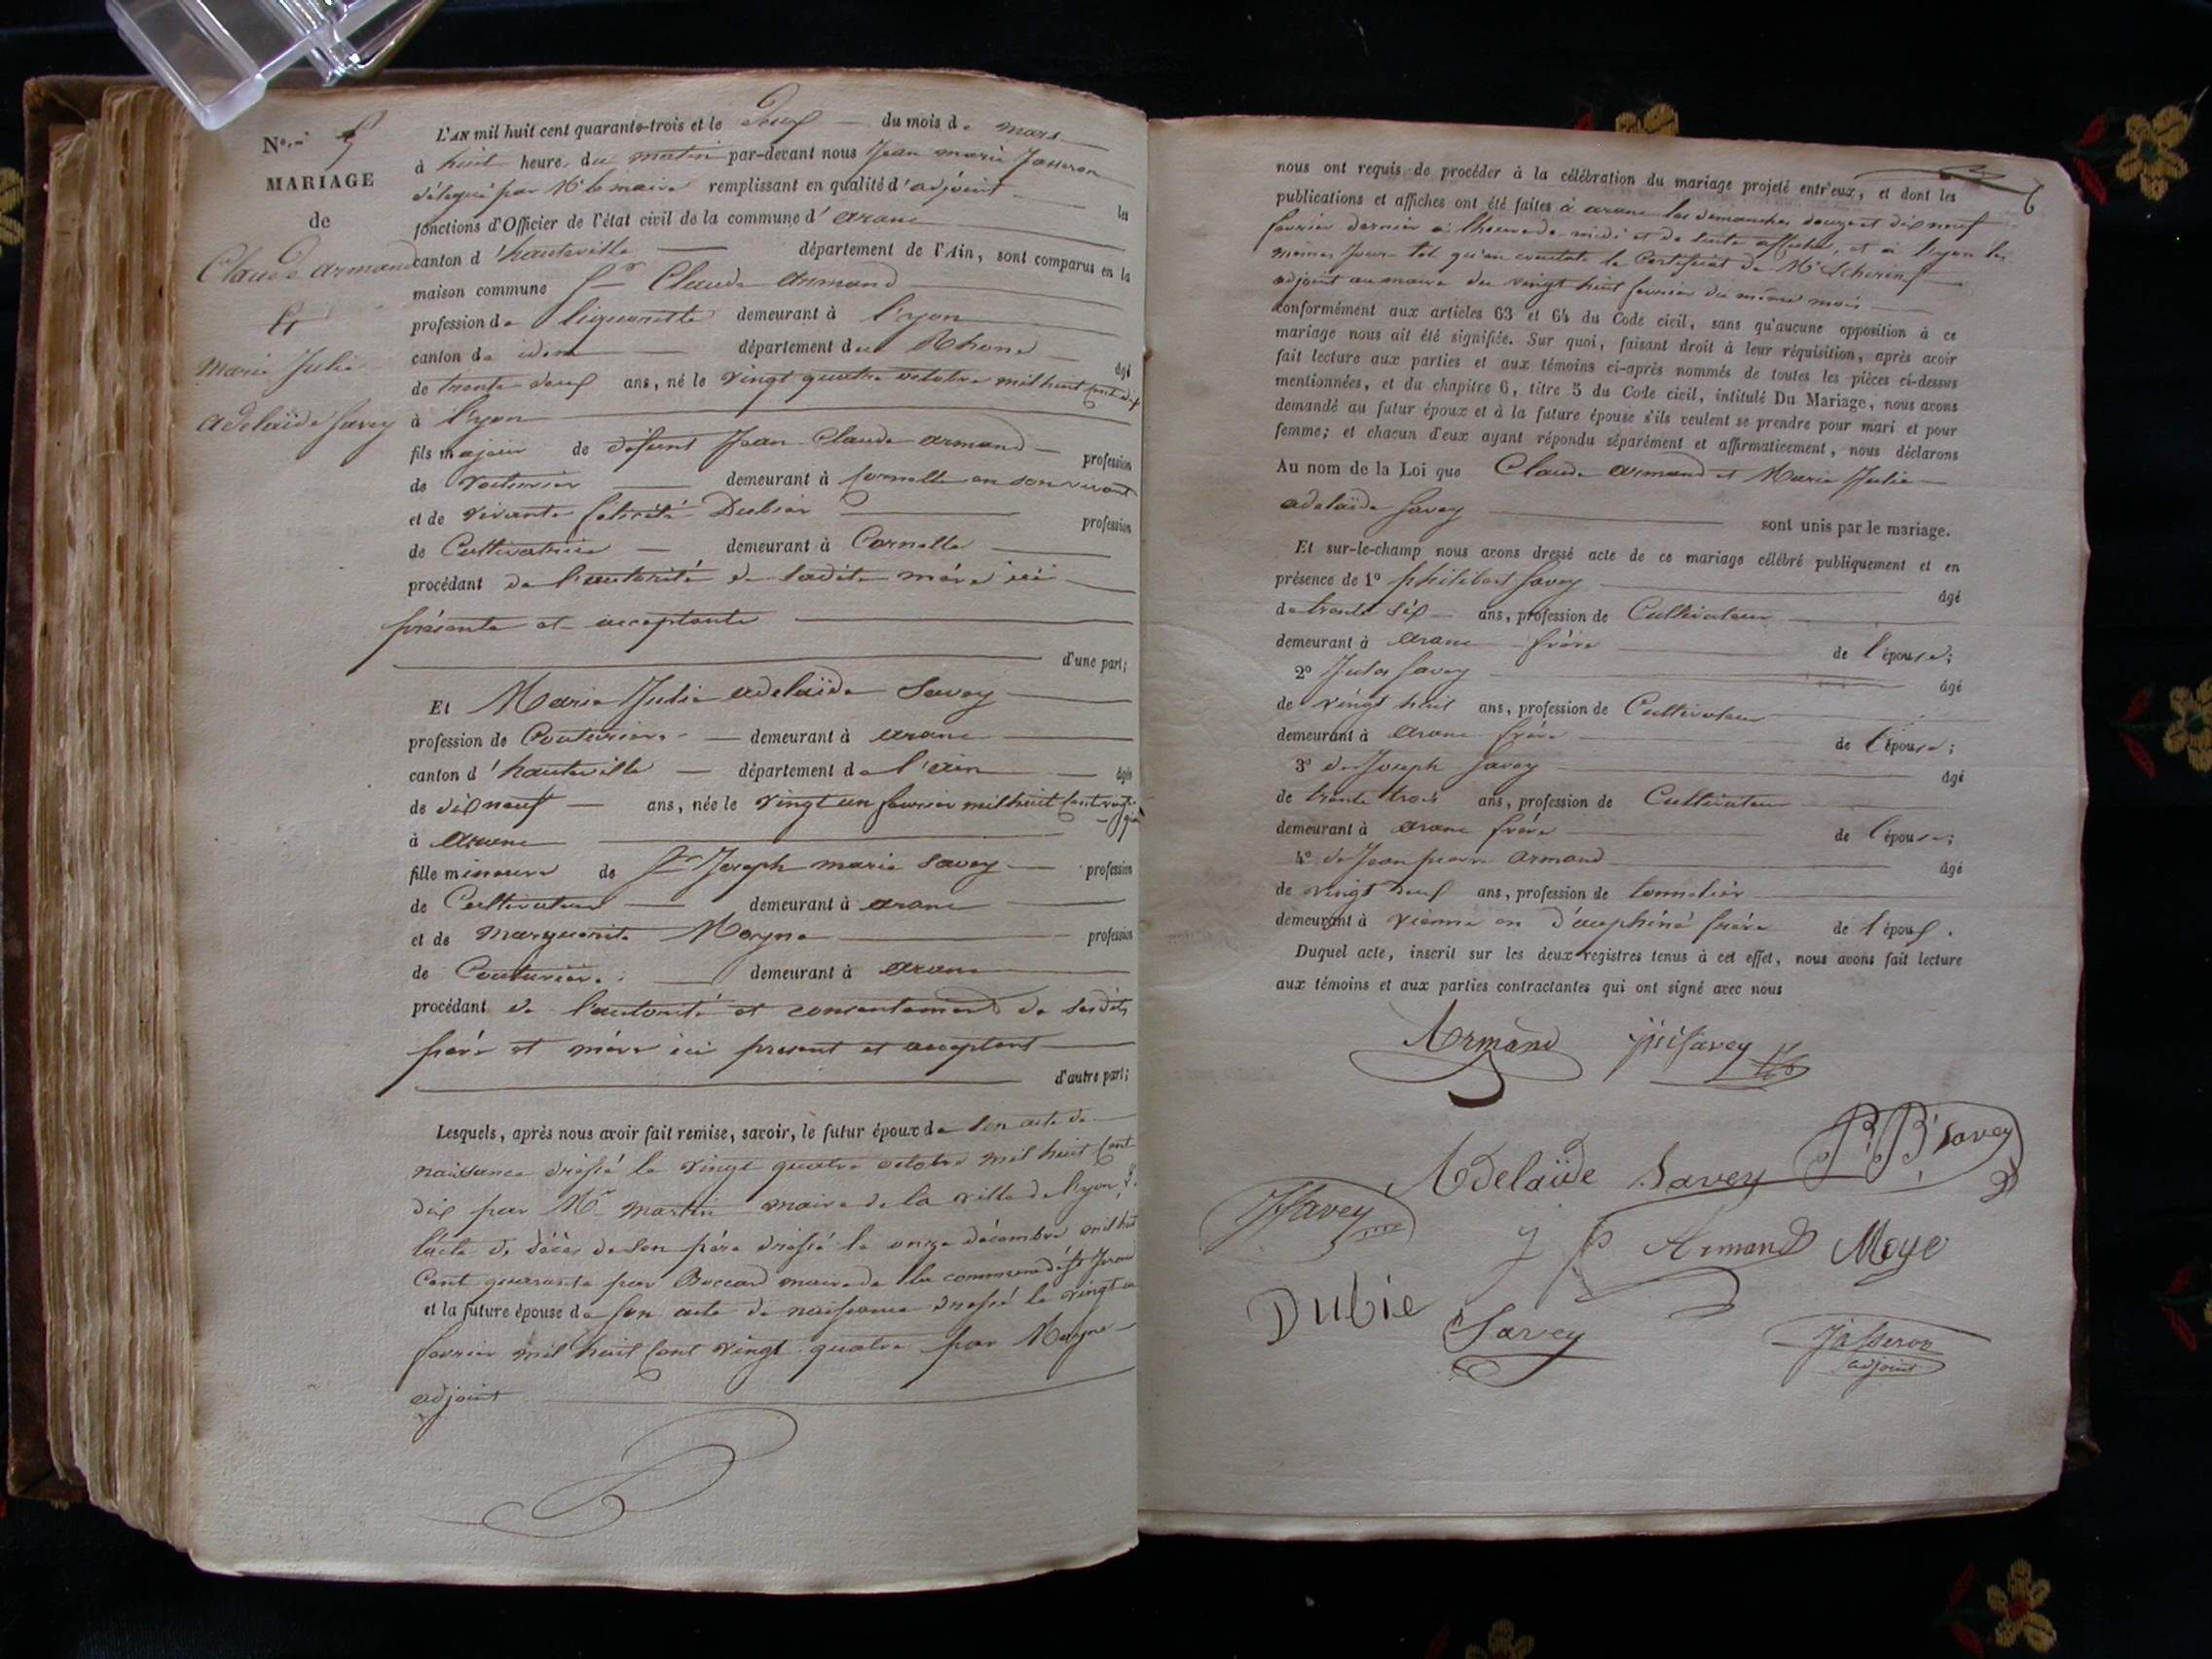 N°.-
MARIAGE
de
Claude armand
Et
Marie Julie
adelaïde Savey
L'AN mil huit cent quarante-trois et le deux du mois de mars
à huit heure, du matin par-devant nous Jean marie Jasseron
délégué par Mr le maire remplissant en qualité d'adjoint les
fonctions d'Officier de l'état civil de la commune d'aranc
canton d'hauteville département de l'Ain, sont comparus en la
maison commune Sr Claude armand
profession de liquoriste demeurant à Lyon
canton de idem département du Rhone âgé
de trente deux ans, né le vingt quatre octobre mil huit cent dix
à Lyon
fils majeur de défunt Jean Claude armand profession
de voiturier demeurant à Cornelle en son vivant
et de vivante felicité Dubier profession
de Cultivatrice demeurant à Cornelle
procédant de l'autorité de ladite mère ici
présente et acceptante
d'une part;
Et Marie Julie adelaïde Savey
profession de Couturière demeurant à aranc
canton d'hauteville département de l'ain âgée
de dix neuf ans, née le vingt un fevrier mil huit cent vingt quatre
à aranc
fille mineure de Sr Joseph marie Savey profession
de Cultivateur demeurant à aranc
et de marguerite Moyne profession
de Couturière demeurant à aranc
procédant de l'autorité et consentement de sesdits
père et mère ici present et acceptant
d'autre part;
Lesquels, après nous avoir fait remise, savoir, le futur époux de son acte de
naissance dressé le vingt quatre octobre mil huit cent
dix par Mr martin maire de la ville de Lyon &
l'acte de décès de son père dressé le onze décembre mil huit
Cent quarante par Boccard maire de la commune de St
et la future épouse de son acte de naissance dressé le vingt un
fevrier mil huit cent vingt quatre par Moyne
adjoint
nous ont requis de procéder à la célébration du mariage projeté entr'eux, et dont les
publications et affiches ont été faites à aranc les dimanches douze et dix neuf
fevrier dernier à l'heure de midi et de suite affichés, et à Lyon les
mêmes jours tel qu'en constate le Certificat de Mr
adjoint au maire du vingt huit fevrier du même mois
conformément aux articles 63 et 64 du Code civil, sans qu'aucune opposition à ce
mariage nous ait été signifiée. Sur quoi, faisant droit à leur réquisition, après avoir
fait lecture aux parties et aux témoins ci-après nommés de toutes les pièces ci-dessus
mentionnées, et du chapitre 6, titre 5 du Code civil, intitulé Du Mariage, nous avons
demandé au futur époux et à la future épouse s'ils veulent se prendre pour mari et pour
femme; et chacun d'eux ayant répondu séparément et affirmativement, nous déclarons
Au nom de la Loi que Claude armand et Marie Julie
adelaïde Savey sont unis par le mariage.
Et sur-le-champ nous avons dressé acte de ce mariage célébré publiquement et en
présence de 1° philibert Savey âgé
de trente six ans, profession de Cultivateur
demeurant à aranc frère de l'épouse;
2° Jules Savey âgé
de vingt huit ans, profession de Cultivateur
demeurant à aranc frère de l'épouse;
3° de Joseph Savey âgé
de trente trois ans, profession de Cultivateur
demeurant à aranc frère de l'épouse;
4° de Jean pierre armand âgé
de vingt neuf ans, profession de tonnelier
demeurant à vienne en dauphiné frère de l'époux.
Duquel acte, inscrit sur les deux registres tenus à cet effet, nous avons fait lecture
aux témoins et aux parties contractantes qui ont signé avec nous
Armand Savey
Adelaïde Savey Savey
Savey
j p Armand Moye
Dubie Savey Jasseron
adjoint